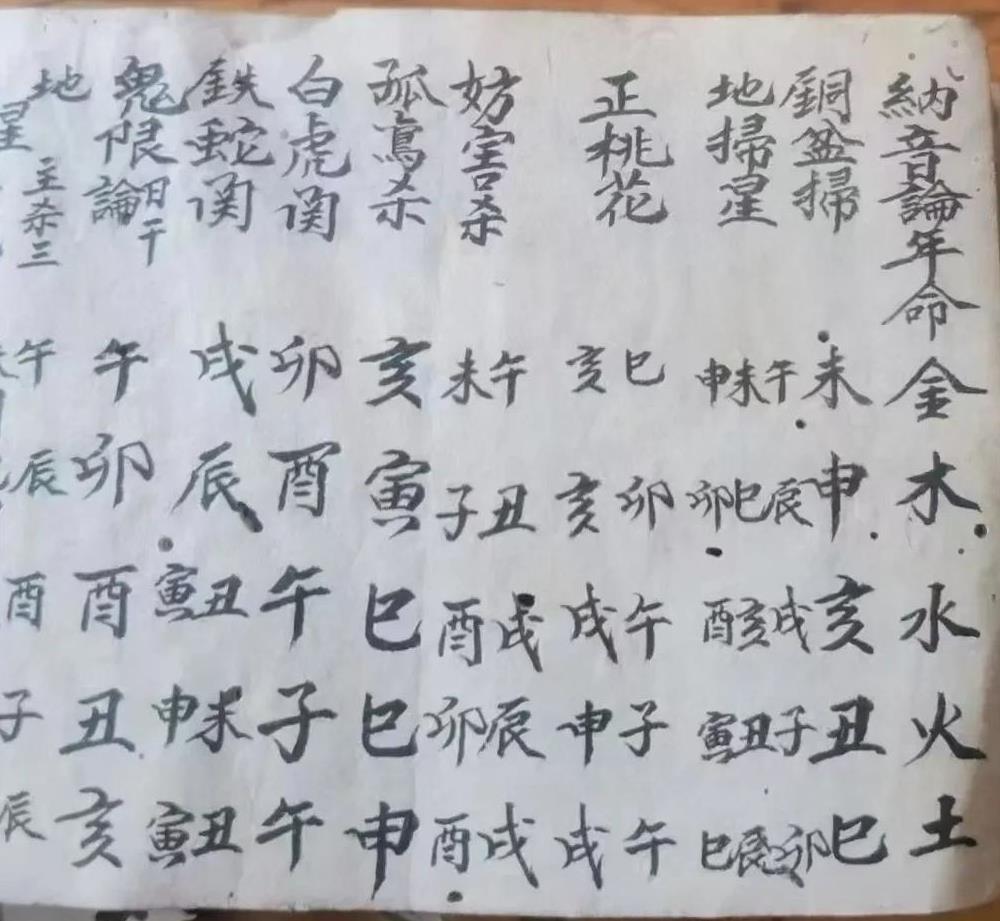 納音論年命金木水火土
銅盆掃未申亥丑巳
地掃星午未申辰巳卯戌亥酉子丑寅卯辰巳
正桃花巳亥卯亥午戌子申午戌
妨害杀午未丑子戌酉辰卯戌酉
孤鸾杀亥寅巳巳申
白虎関卯酉午子午
鉄蛇関戌辰丑寅未申丑寅
鬼限論日干午卯酉丑亥
地星主杀三午辰酉子辰